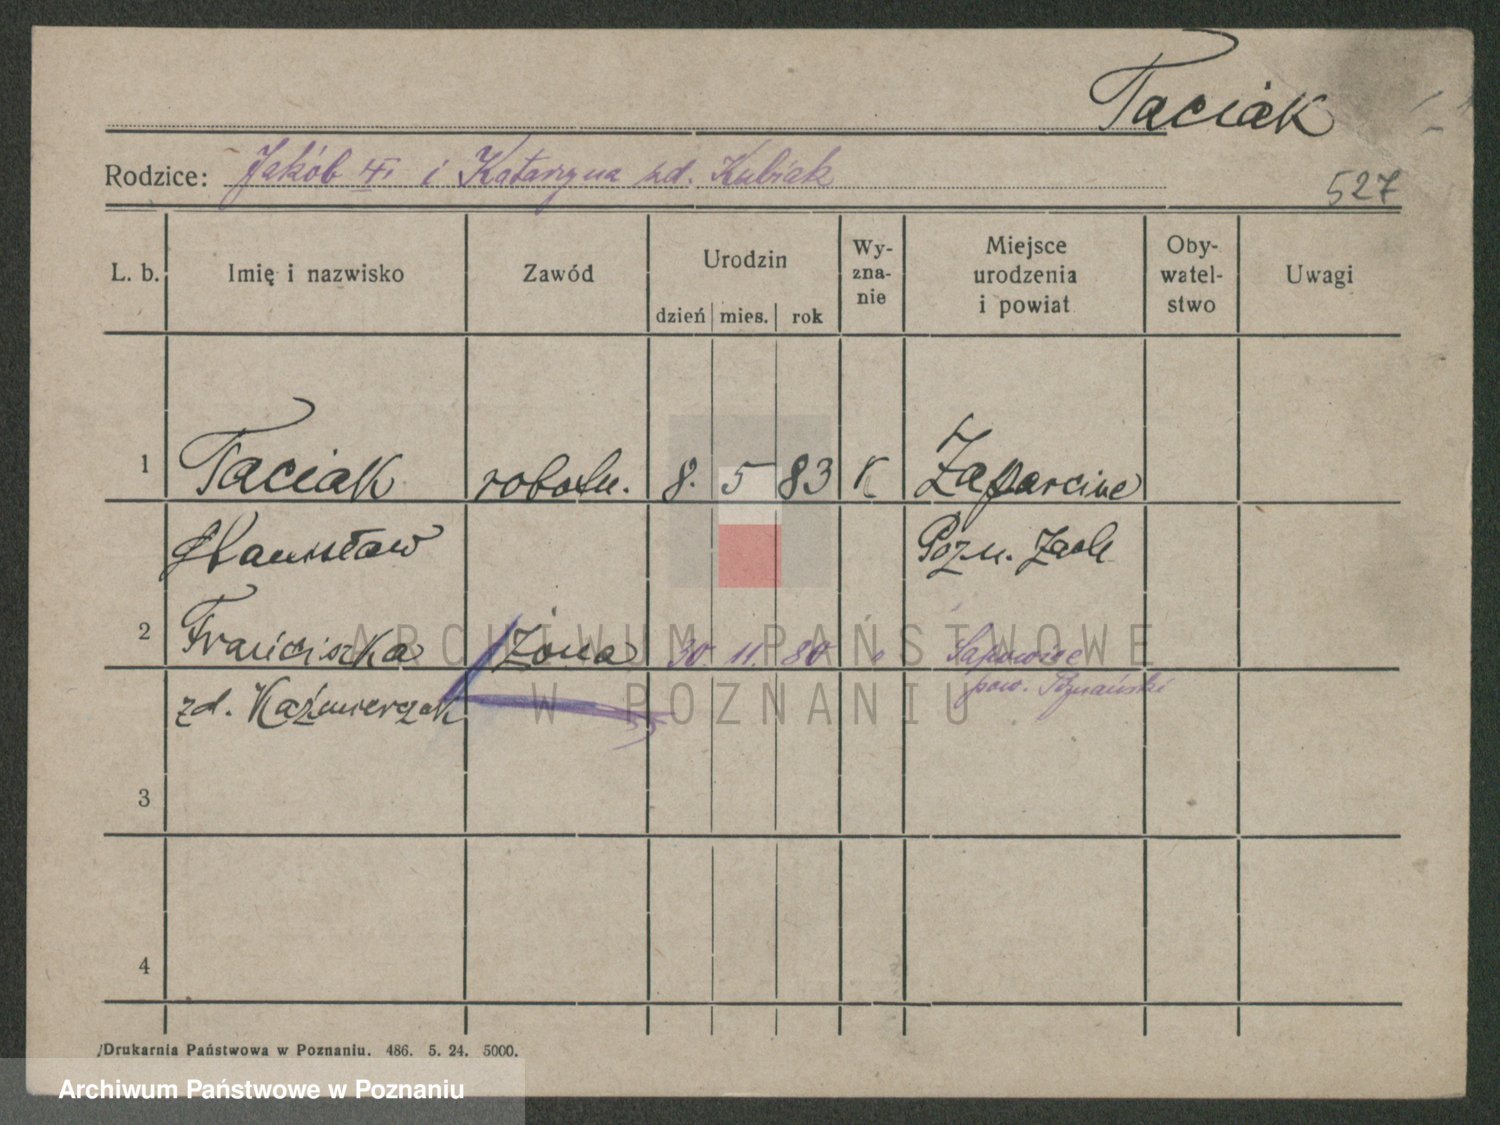 Taciak
Rodzice: Jakób i Katarzyna zd. Kubiak
527
L. b. Imię i nazwisko Zawód Urodzin Wy-zna-nie Miejsce urodzenia i powiat Oby-watel-stwo Uwagi
dzień mies. rok
1 Taciak robotn. 8. 5 83 K
Stanisław Pozn. Zach
2 Franciszka Żona 30 11. 80 Sapowice
zd. Kaźmierczak pow. Poznański
3
4
Drukarnia Państwowa w Poznaniu. 486. 5. 24. 5000.
ARCHIWUM PAŃSTWOWE
W POZNANIU
Archiwum Państwowe w Poznaniu